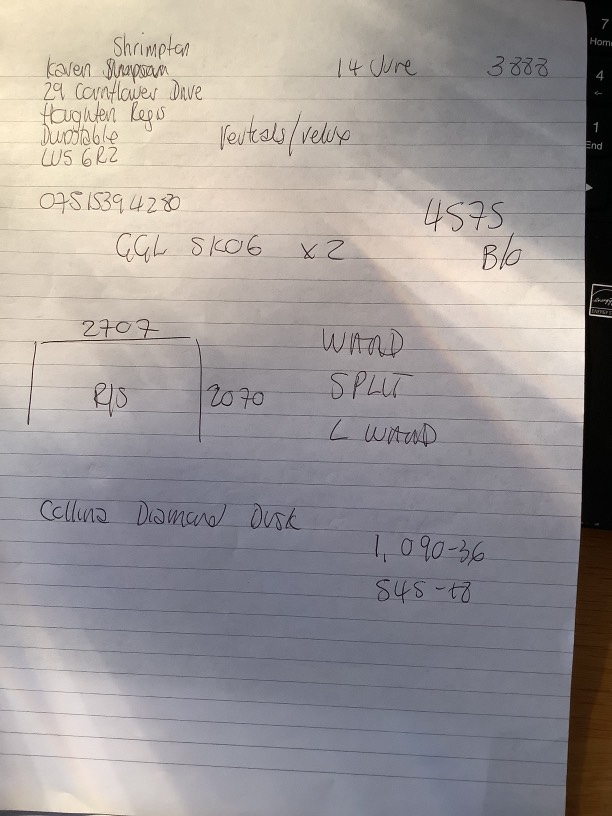 Shrimpton
Karen
14 June
3888
29 Cornflower Drive
Houghton Regis
Dunstable
LU5 6RZ
Verticals/velux
07515394280
4575
B/o
GGL SK06 x 2
2707
R/S
2070
WAND
SPLIT
L WAND
Collina Diamond Dusk
1,090-36
545-18
7
Home
4
←
1
End